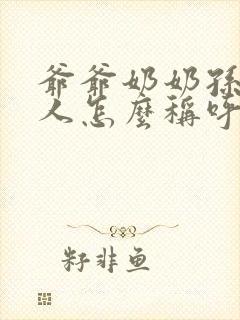 爺爺奶奶孫
人怎麼稱呼
籽非魚